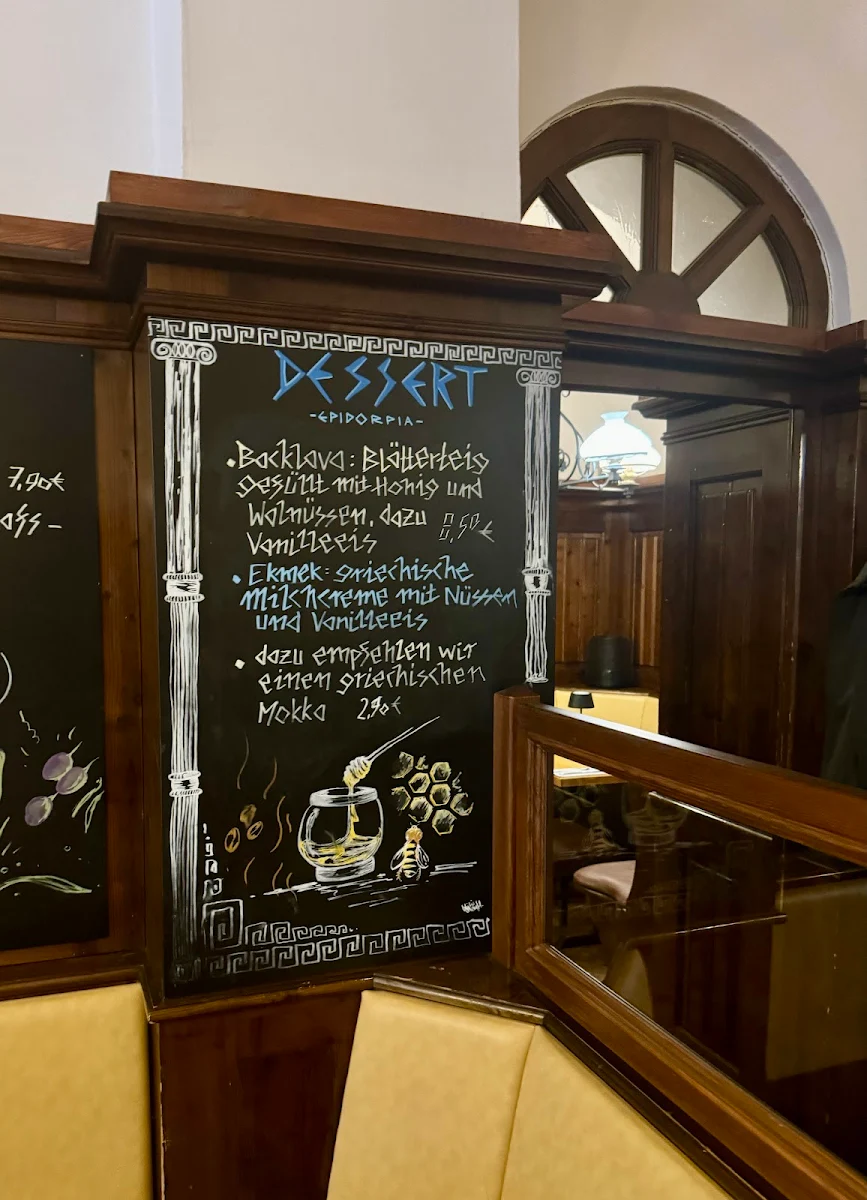 7,90€
DESSERT
-EPIDORPIA-
• Backlava: Blätterteig
gefüllt mit Honig und
Walnüssen, dazu 8,50€
Vanilleeis
• Ekmek: griechische
Milchcreme mit Nüssen
und Vanilleeis
• dazu empfehlen wir
einen griechischen
Mokka 2,90€